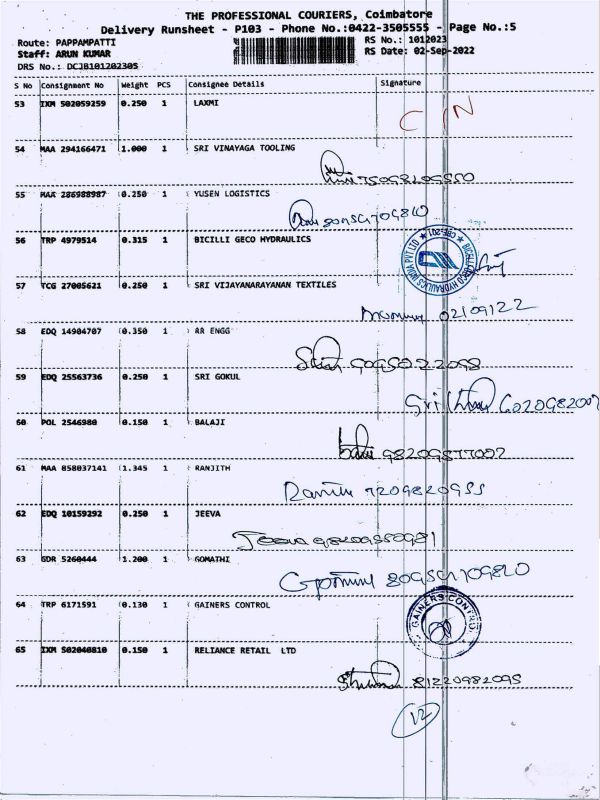 THE PROFESSIONAL COURIERS, Coimbatore
Delivery Runsheet - P103 - Phone No.:0422-3505555 - Page No.:5
Route: PAPPAMPATTI RS No.: 1012023
Staff: ARUN KUMAR RS Date: 02-Sep-2022
DRS No.: DCJB101202305
S No Consignment No Weight PCS Consignee Details Signature
53 IXM 502059259 0.250 1 LAXMI
C IN
54 MAA 294166471 1.000 1 SRI VINAYAGA TOOLING
55 MAA 286988987 0.250 1 YUSEN LOGISTICS
56 TRP 4979514 0.315 1 BICILLI GECO HYDRAULICS
57 TCG 27005621 0.250 1 SRI VIJAYANARAYANAN TEXTILES
02/09/22
58 EDQ 14904707 0.350 1 RR ENGG
9095022098
59 EDQ 25563736 0.250 1 SRI GOKUL
Sri
60 POL 2546980 0.150 1 BALAJI
61 MAA 858037141 1.345 1 RANJITH
7209820955
62 EDQ 10159292 0.250 1 JEEVA
Jeeva
63 GDR 5260444 1.200 1 GOMATHI
64 TRP 6171591 0.130 1 GAINERS CONTROL
GAINERS CONTROL
65 IXM 502040810 0.150 1 RELIANCE RETAIL LTD
81220982095
12